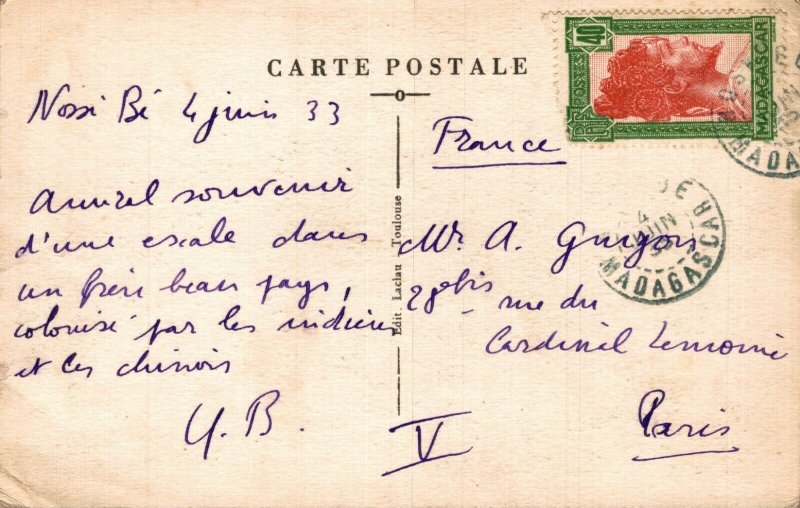 CARTE POSTALE
Nossi Bé 4 juin 33
Amical souvenir
d'une escale dans
un très beau pays,
colonisé par les indiens
et les chinois
Y. B.
Edit. Laclau Toulouse
40
MADAGASCAR
4
JUIN
MADAGASCAR
France
Mr. A. Guyon
28bis rue du
Cardinal Lemoine
Paris
V